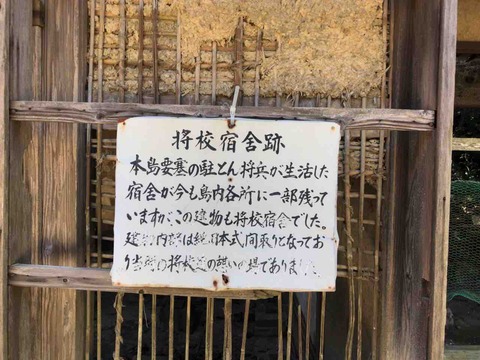 将校宿舎跡
本島要塞の駐とん将兵が生活した
宿舎が今も島内各所に一部残って
いますが、この建物も将校宿舎でした。
建物内部は純日本式間取りとなってお
り当時の将校達の憩いの場でありました